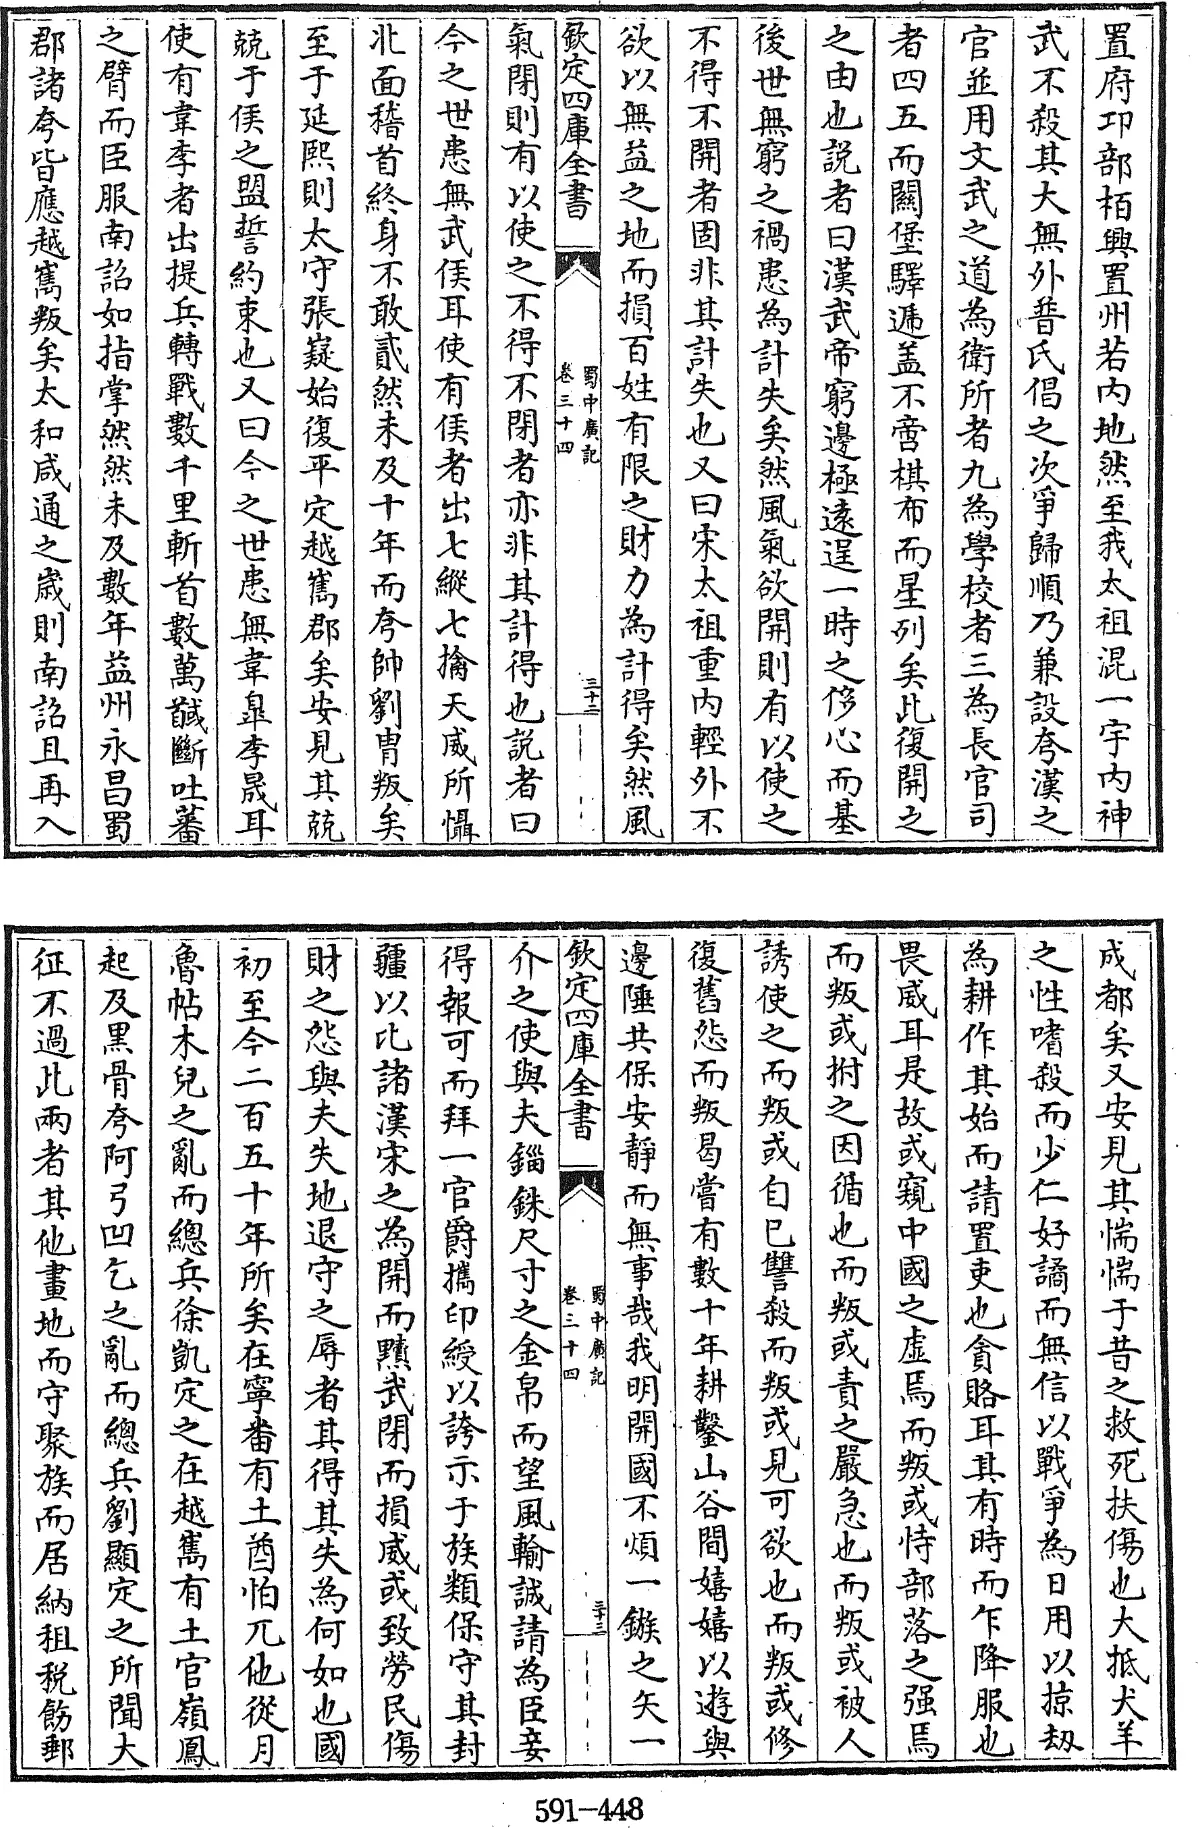 置府卭部栢興置州若内地然至我太祖混一宇内神
武不殺其大無外普氏倡之次爭歸順乃兼設夸漢之
官並用文武之道為衛所者九為學校者三為長官司
者四五而關堡驛逓盖不啻棋布而星列矣此復開之
之由也說者曰漢武帝窮邊極遠逞一時之侈心而基
後世無窮之禍患為計失矣然風氣欲開則有以使之
不得不開者固非其計失也又曰宋太祖重内輕外不
欲以無益之地而損百姓有限之財力為計得矣然風
欽定四庫全書
蜀中廣記
卷三十四
三十二
氣閉則有以使之不得不閉者亦非其計得也說者曰
今之世患無武侯耳使有侯者出七縱七擒天威所懾
北面稽首終身不敢貳然未及十年而夸帥劉胄叛矣
至于延熙則太守張嶷始復平定越嶲郡矣安見其兢
兢于侯之盟誓約束也又曰今之世患無韋臯李晟耳
使有韋李者出提兵轉戰數千里斬首數萬馘斷吐蕃
之臂而臣服南詔如指掌然然未及數年益州永昌蜀
郡諸夸皆應越嶲叛矣太和咸通之歲則南詔且再入
成都矣又安見其惴惴于昔之救死扶傷也大抵犬羊
之性嗜殺而少仁好譎而無信以戰爭為日用以掠刼
為耕作其始而請置吏也貪賂耳其有時而乍降服也
畏威耳是故或窺中國之虛焉而叛或恃部落之强焉
而叛或拊之因循也而叛或責之嚴急也而叛或被人
誘使之而叛或自已讐殺而叛或見可欲也而叛或修
復舊怨而叛曷嘗有數十年耕鑿山谷間嬉嬉以遊與
邊陲共保安靜而無事哉我明開國不煩一鏃之矢一
欽定四庫全書
蜀中廣記
卷三十四
三十三
介之使與夫錙銖尺寸之金帛而望風輸誠請為臣妾
得報可而拜一官爵攜印綬以誇示于族類保守其封
疆以比諸漢宋之為開而黷武閉而損威或致勞民傷
財之怨與夫失地退守之辱者其得其失為何如也國
初至今二百五十年所矣在寧番有土酋怕兀他從月
魯帖木兒之亂而總兵徐凱定之在越嶲有土官嶺鳳
起及黑骨夸阿弓凹乞之亂而總兵劉顯定之所聞大
征不過此兩者其他畫地而守聚族而居納租稅飭郵
591-448